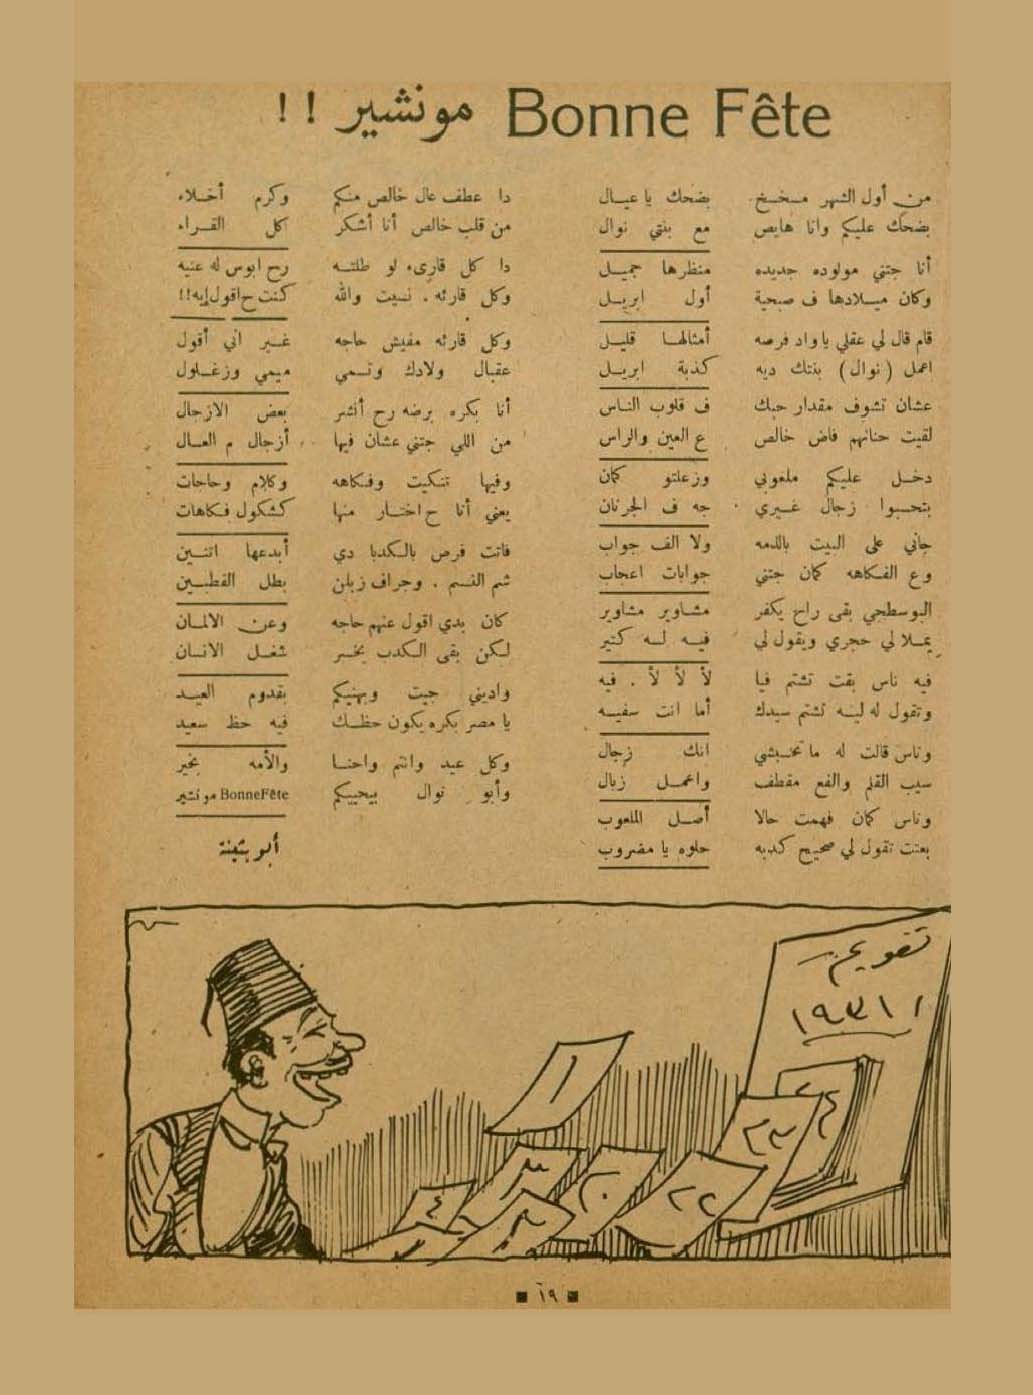 Bonne Fête مونشير !!
من أول الشهر مسخسخ بضحك يا عيال
بضحك عليكم وانا هايص مع بنتي نوال
أنا جتني مولوده جديده منظرها جميل
وكان ميلادها ف صبحية أول ابريل
قام قال لي عقلي ياواد فرصه أمثالها قليل
اعمل (نوال) بنتك ديه كذبة ابريل
عشان تشوف مقدار حبك ف قلوب الناس
لقيت حنانهم فاض خالص ع العين والراس
دخل عليكم ملعوبي وزعلتو كمان
بتحسبوا زجال غيري جه ف الجرنان
جاني على البيت باللدمه ولا الف جواب
وع الفكاهه كمان جتني جوابات اعجاب
البوسطجي بقى راح يكفر مشاوير مشاوير
يملا لي حجري ويقول لي فيه لسه كتير
فيه ناس بقت تشتم فيا لأ لأ لأ . فيه
وتقول له ليه تشتم سيدك أما انت سفيه
وناس قالت له ما تخبشي انك زجال
سيب القلم والفع مقطف واعمل زبال
وناس كمان فهمت حالا أصل الملعوب
بعتت تقول لي صحيح كدبه حلوه يا مضروب
دا عطف عال خالص منكم وكرم أخلاء
من قلب خالص أنا أشكر كل القراء
دا كل قارىء لو طلته رح ابوس له عنيه
وكل قارئه . نسيت والله كنت ح اقول إيه!!
وكل قارئه مفيش حاجه غير اني أقول
عقبال ولادك وتسمي ميمي وزغلول
أنا بكره برضه رح أنشر بعض الازجال
من اللي جتني عشان فيها أزجال م العال
وفيها تنكيت وفكاهه وكلام وحاجات
يعني أنا ح اختار منها كشكول فكاهات
فاتت فرص بالكدبا دي أبدعها اتنين
شم النسم . وجراف زبلن بطل القطبين
كان بدي اقول عنهم حاجه وعن الالمان
لكن بقى الكدب بخسر شغل الانسان
واديني جيت وبهنيكم بقدوم العيد
يا مصر بكره يكون حظك فيه حظ سعيد
وكل عيد وانتم واحنا والأمه بخير
وأبو نوال بيحييكم BonneFête مونشير
أبو بثينة
تقويم
١٩٣١
١
٤
٢٣
٢٢
٢٠
٣
٤
٢
١٩